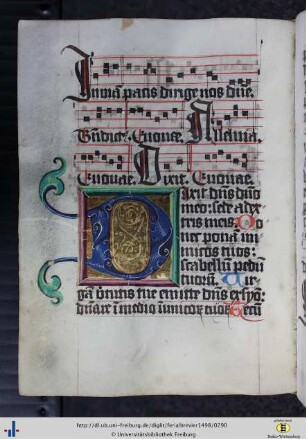 In viam pacis dirige nos dñe.
Bñdict⁹. Euouae. Alleluia.
Euouae. Dixit. Euouae.
Dixit dñs dño
meo: sede a dex
tris meis. Do
nec ponā ini
micos tuos:
scabellū pedū
tuorū. Uir
gā virtutis tue emittet dñs ex syō:
dñare ī medio inimicorū tuorū. Tecū
http://dl.ub.uni-freiburg.de/diglit/ferialbrevier1498/0290
© Universitätsbibliothek Freiburg